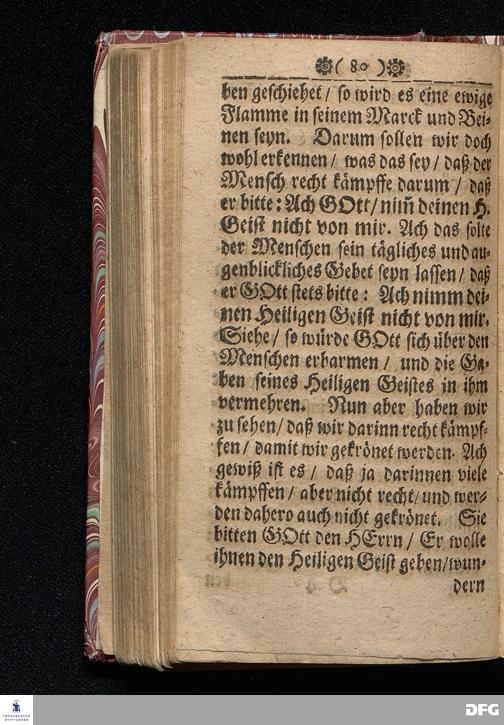 ( 80 )
ben geschiehet / so wird es eine ewige
Flamme in seinem Marck und Bei-
nen seyn. Darum sollen wir doch
wohl erkennen / was das sey / daß der
Mensch recht kämpffe darum / daß
er bitte: Ach GOtt / nim̃ deinen H.
Geist nicht von mir. Ach das solte
der Menschen sein tägliches und au-
genblickliches Gebet seyn lassen / daß
er GOtt stets bitte: Ach nimm dei-
nen Heiligen Geist nicht von mir.
Siehe / so würde GOtt sich über den
Menschen erbarmen / und die Ga-
ben seines Heiligen Geistes in ihm
vermehren. Nun aber haben wir
zu sehen / daß wir darinn recht kämpf-
fen / damit wir gekrönet werden. Ach
gewiß ist es / daß ja darinnen viele
kämpffen / aber nicht recht / und wer-
den dahero auch nicht gekrönet. Sie
bitten GOtt den HErrn / Er wolle
ihnen den Heiligen Geist geben / wun-
dern
FRANCKESCHE
STIFTUNGEN
DFG